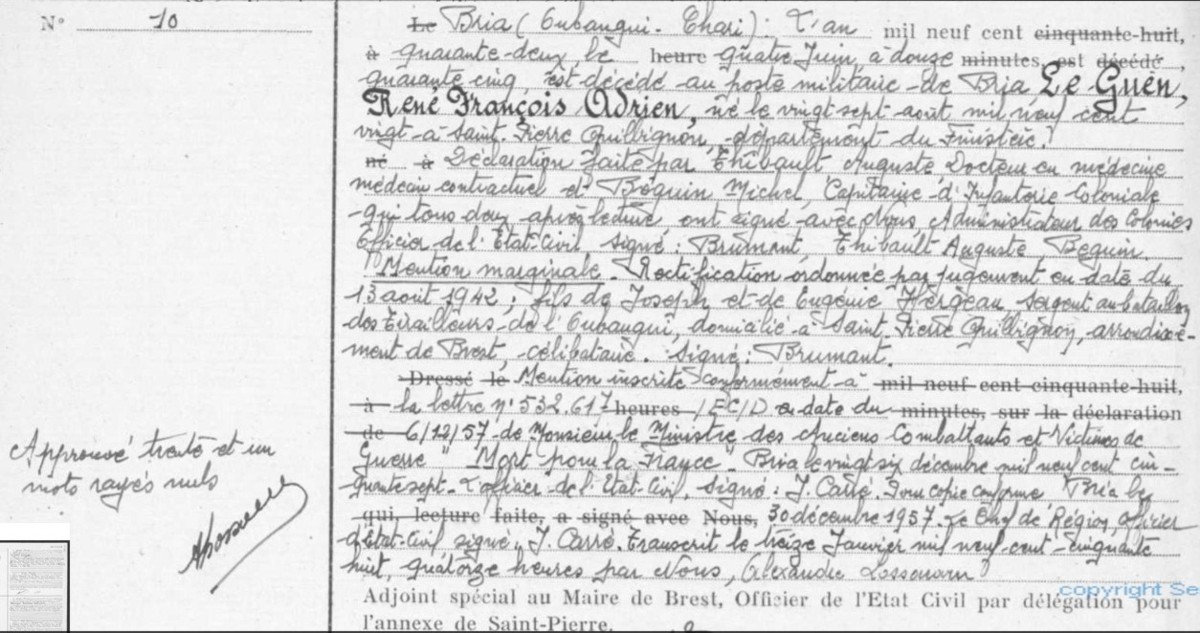 N° 10
Le Bria (Oubangui-Chari): L'an mil neuf cent cinquante-huit,
à quarante-deux, le heure quatre Juin, à douze minutes, est décédé
quarante cinq, est décédé au poste militaire de Bria, Le Guen,
René François Adrien, né le vingt sept août mil neuf cent
vingt à Saint-Pierre Quilbignon, département du Finistère.
né à Déclaration faite par Thibault Auguste Docteur en médecine
médecin contractuel et Béguin Michel, Capitaine d'Infanterie Coloniale
qui tous deux après lecture ont signé avec Nous, Administrateur des Colonies
Officier de l'Etat-Civil signé: Brumant, Thibault Auguste Béguin
Mention marginale. Rectification ordonnée par jugement en date du
13 août 1942: fils de Joseph et de Eugénie Hergeau, sergent au bataillon
des Tirailleurs de l'Oubangui, domicilié à Saint Pierre Quilbignon, arrondisse-
ment de Brest, célibataire. signé: Brumant.
Dressé le, Mention inscrite conformément à mil neuf cent cinquante-huit,
à la lettre n° 532.617 heures /EC/D en date du minutes, sur la déclaration
de 6/12/57 de Monsieur le Ministre des Anciens Combattants et Victimes de
Guerre "Mort pour la France". Bria le vingt six décembre mil neuf cent cin-
quante sept. L'officier de l'Etat-Civil, signé: J. Carré. Pour copie conforme Bria le
qui, lecture faite, a signé avec Nous, 30 décembre 1957. Le Chef de Région, officier
d'état-Civil signé. J. Carré. Transcrit le treize Janvier mil neuf-cent-cinquante
huit, quatorze heures par Nous, Alexandre
Adjoint spécial au Maire de Brest, Officier de l'Etat Civil par délégation pour
l'annexe de Saint-Pierre.
Approuvé trente et un
mots rayés nuls
copyright Se